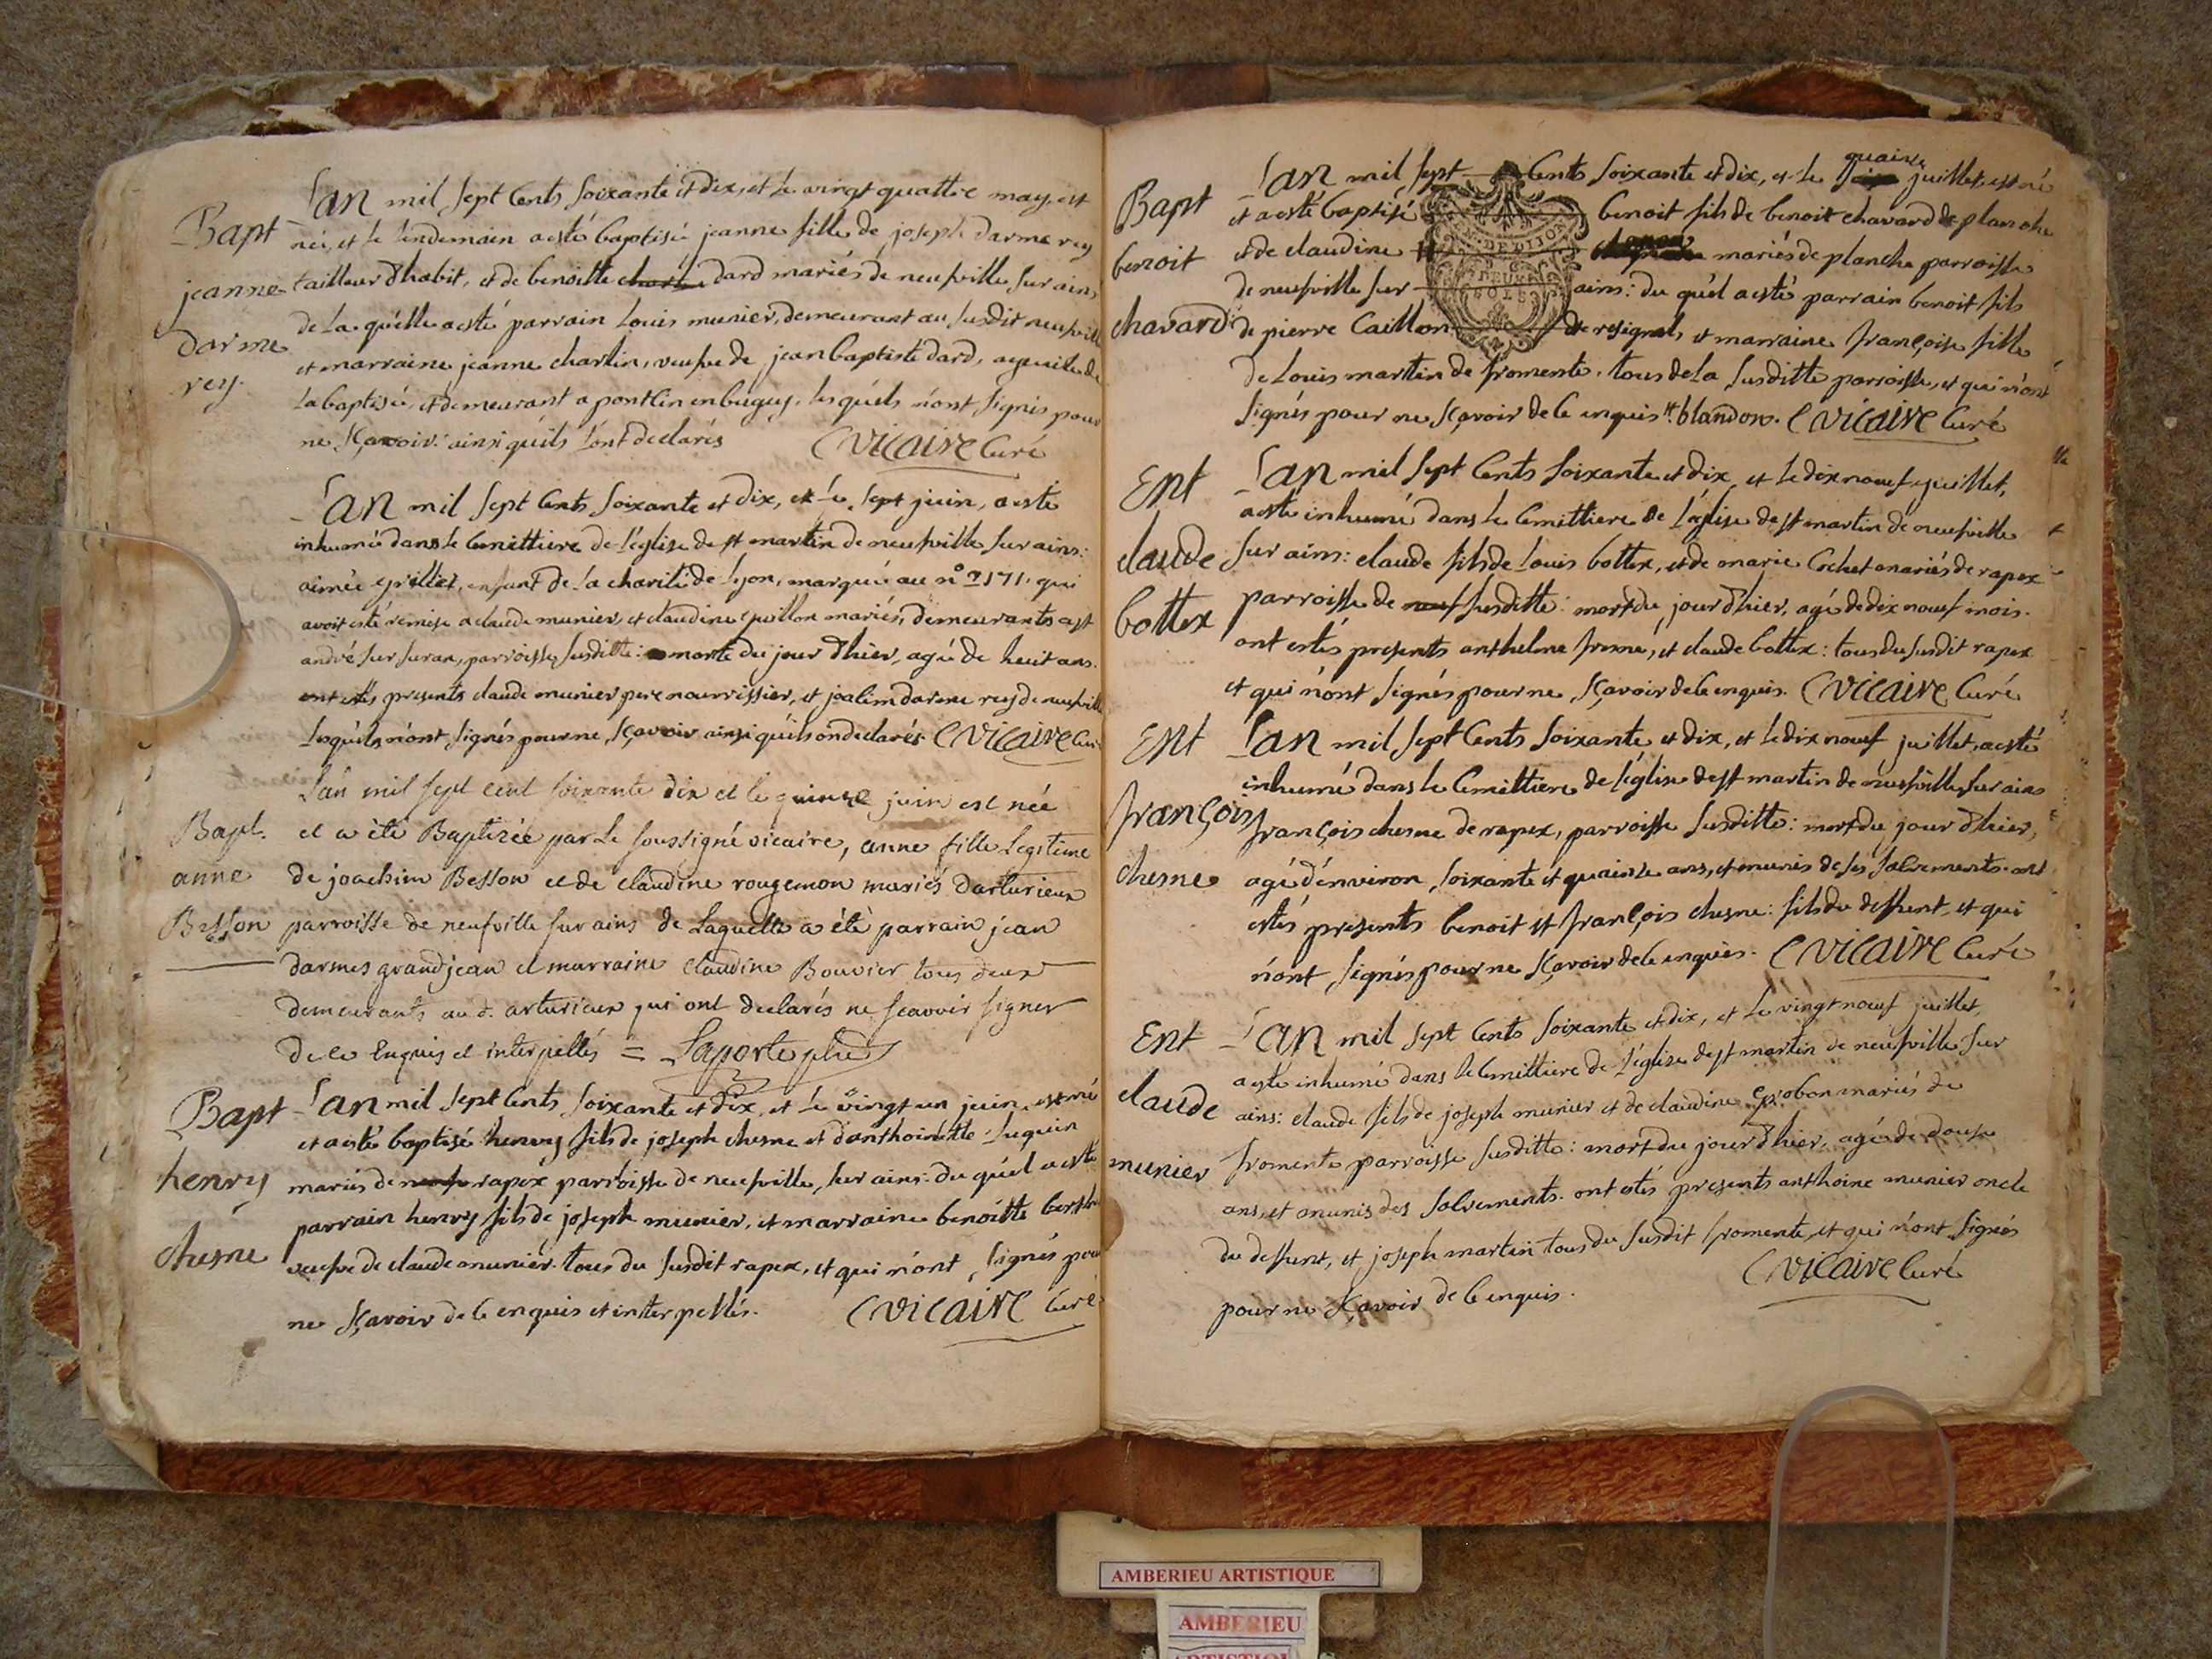 Bapt
jeanne
darme
rey.
Lan mil sept Cents soixante et dix, et Le vingt quattre may, est
née, et le lendemain a esté baptisée jeanne fille de joseph darme rey
tailleur d'habit, et de benoitte dard mariés de neufville sur ains
de La quelle a esté parrain Louis munier, demeurant au susdit neufville
et marraine jeanne charlin, veufve de jean baptiste dard, ayeule de
La baptisée, et demeurant a pontlin en bugey. Les quels n'ont signés pour
ne sçavoir: ainsi quils l'ont declarés CVicaire Curé
Lan mil sept Cents soixante et dix, et Le sept juin, a esté
inhumée dans le Cemittiere de l'église de st martin de neufville sur ains:
aimée grillet, enfant de La charité de Lyon, marquée au n° 2171. qui
avoit esté remise a claude munier, et claudine mariés, demeurants a st
andré sur suran, parroisse susditte: morte du jour d'hier, agée de heuit ans.
ont estés presents claude munier pere nourrissier, et joalim darme rey de neufville
Lesquels n'ont signés pour ne sçavoir ainsi quils on declarés CVicaire Curé
Bapt.
anne
Besson
Lan mil sept cent soixante dix et le quinze juin est née
et a été Baptisée par Le soussigné vicaire, anne fille Legitime
de joachim Besson et de claudine rougemon mariés d'arturieux
parroisse de neufville sur ains de Laquelle a été parrain jean
darmes grandjean et marraine claudine Bouvier tous deux
demeurants au d. arturieux qui ont declarés ne scavoir signer
de ce Enquis et interpellés = Laporte ptre
Bapt
henry
chesne
Lan mil sept Cents soixante et dix, et Le vingt un juin, est né
et a esté baptisé henry fils de joseph chesne et d'anthoinette
mariés de rapex parroisse de neufville sur ains. du quel a esté
parrain henry fils de joseph munier, et marraine benoitte
veufve de claude munier. tous du susdit rapex, et qui n'ont signés pour
ne sçavoir de Ce enquis et interpellés. CVicaire Curé
Bapt
benoit
chavard
Lan mil sept Cents soixante et dix, et Le quainze juillet, est né
et a esté baptisé benoit fils de benoit chavard de planche
et de claudine mariés de planche parroisse
de neufville sur ains: du quel a esté parrain benoit fils
de pierre Caillon de resignel, et marraine françoise fille
de Louis martin de fromente. tous de La susditte parroisse, et qui n'ont
signés pour ne sçavoir de Ce enquis # blandon. CVicaire Curé
Ent
claude
bottex
Lan mil sept Cents soixante et dix, et Le dix neuf juillet,
a esté inhumé dans Le Cemittiere de l'église de st martin de neufville
sur ains: claude fils de Louis bottex, et de marie Cochet mariés de rapex
parroisse de susditte: mort du jour d'hier, agé de dix neuf mois.
ont estés presents anthelme et claude bottex: tous du susdit rapex
et qui n'ont signés pour ne sçavoir de Ce enquis. CVicaire Curé
Ent
françois
chesne
Lan mil sept Cents soixante et dix, et Le dix neuf juillet, a esté
inhumé dans Le Cemittiere de l'église de st martin de neufville sur ains
françois chesne de rapex, parroisse susditte: mort du jour d'hier,
agé d'environ soixante et quainze ans, et munis de ses Sacrements. ont
estés presents benoit et françois chesne: fils du deffunt, et qui
n'ont signés pour ne sçavoir de Ce enquis. CVicaire Curé
Ent
claude
munier
Lan mil sept Cents soixante et dix, et Le vingt neuf juillet,
a esté inhumé dans Le Cemittiere de l'église de st martin de neufville sur
ains: claude fils de joseph munier et de claudine mariés de
fromente parroisse susditte: mort du jour d'hier, agé de douze
ans, et munis des Sacrements. ont estés presents anthoine munier oncle
du deffunt, et joseph martin tous du susdit fromente, et qui n'ont signés
pour ne sçavoir de Ce enquis. CVicaire Curé
AMBERIEU ARTISTIQUE
AMBERIEU
ARTISTIQUE